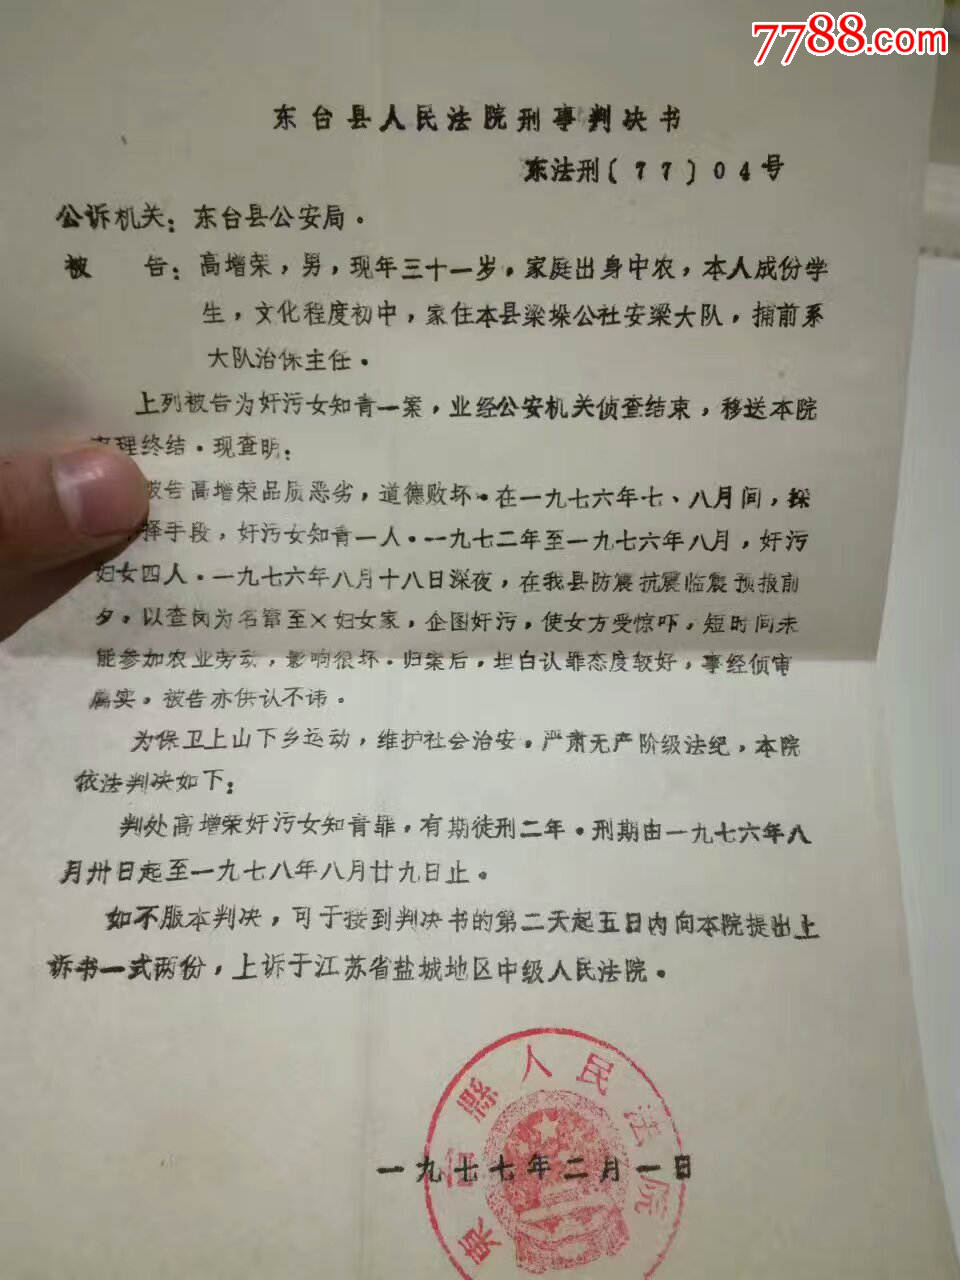 7788.com
东台县人民法院刑事判决书
东法刑〔77〕04号
公诉机关：东台县公安局。
被 告：高增荣，男，现年三十一岁，家庭出身中农，本人成份学
生，文化程度初中，家住本县梁垛公社安梁大队，捕前系
大队治保主任。
上列被告为奸污女知青一案，业经公安机关侦查结束，移送本院
理终结。现查明：
被告高增荣品质恶劣，道德败坏。在一九七六年七、八月间，採
择手段，奸污女知青一人。一九七二年至一九七六年八月，奸污
妇女四人。一九七六年八月十八日深夜，在我县防震抗震临震预报前
夕，以查岗为名窜至×妇女家，企图奸污，使女方受惊吓，短时间未
能参加农业劳动，影响很坏。归案后，坦白认罪态度较好，事经侦审
属实。被告亦供认不讳。
为保卫上山下乡运动，维护社会治安。严肃无产阶级法纪，本院
依法判决如下：
判处高增荣奸污女知青罪，有期徒刑二年。刑期由一九七六年八
月卅日起至一九七八年八月廿九日止。
如不服本判决，可于接到判决书的第二天起五日内向本院提出上
诉书一式两份，上诉于江苏省盐城地区中级人民法院。
東台縣人民法院
一九七七年二月一日